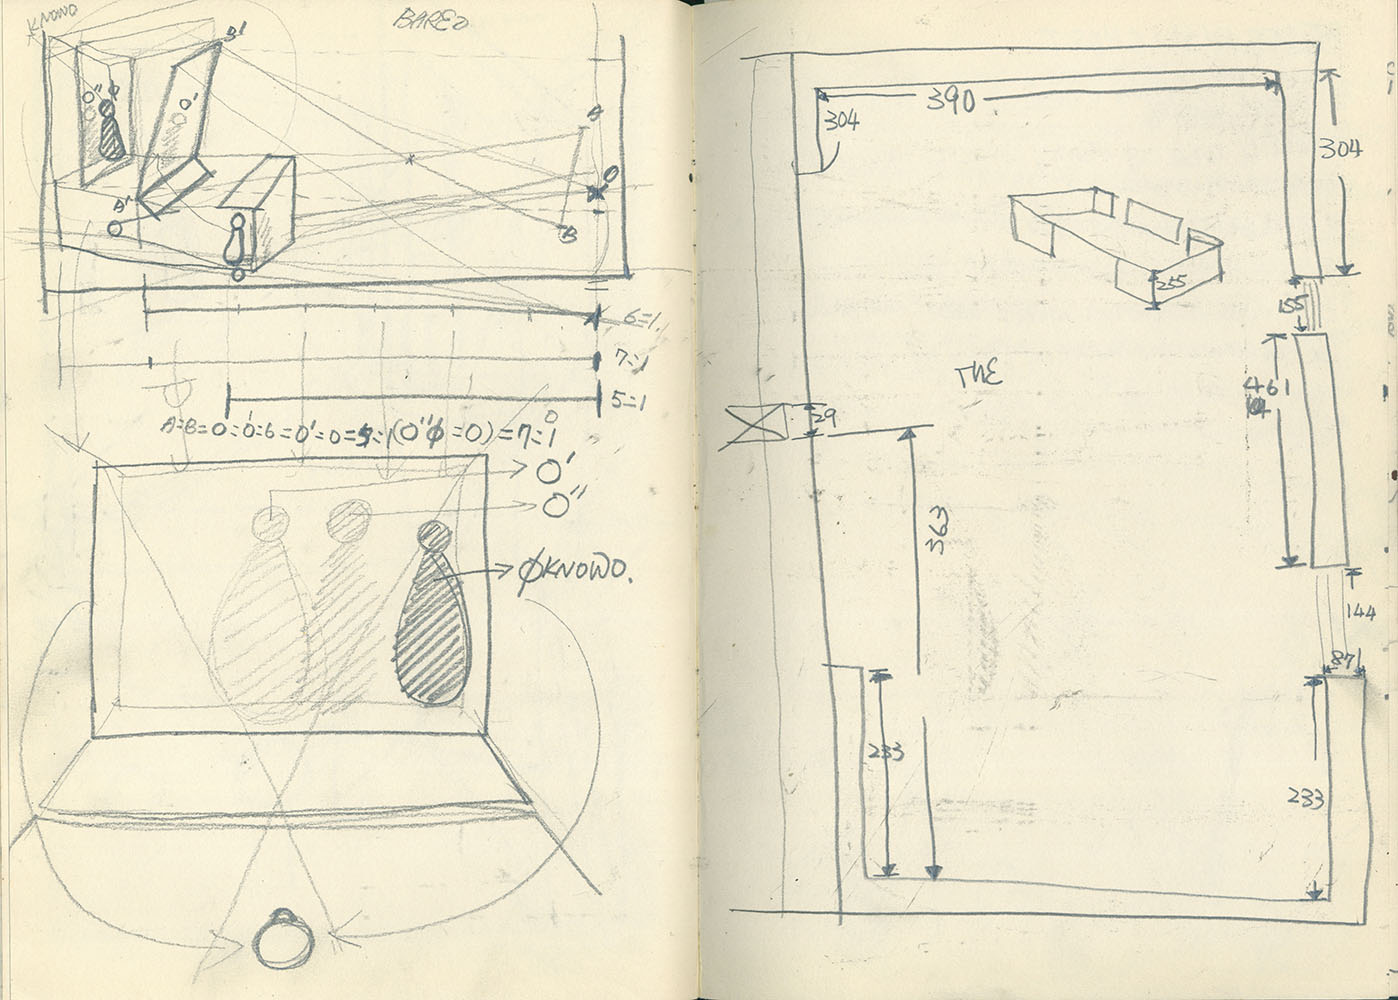 KNOWO
BAREO
B'
O'' φ
O'
B
O
A'
O
B
O
6=1.
7=1
5=1
O
A=B=O=O'=6=O'=O=5=1(O''φ=O)=7=1
O'
O''
φKNOWO.
390
304
304
255
155
THE
461
29
363
144
87
233
233